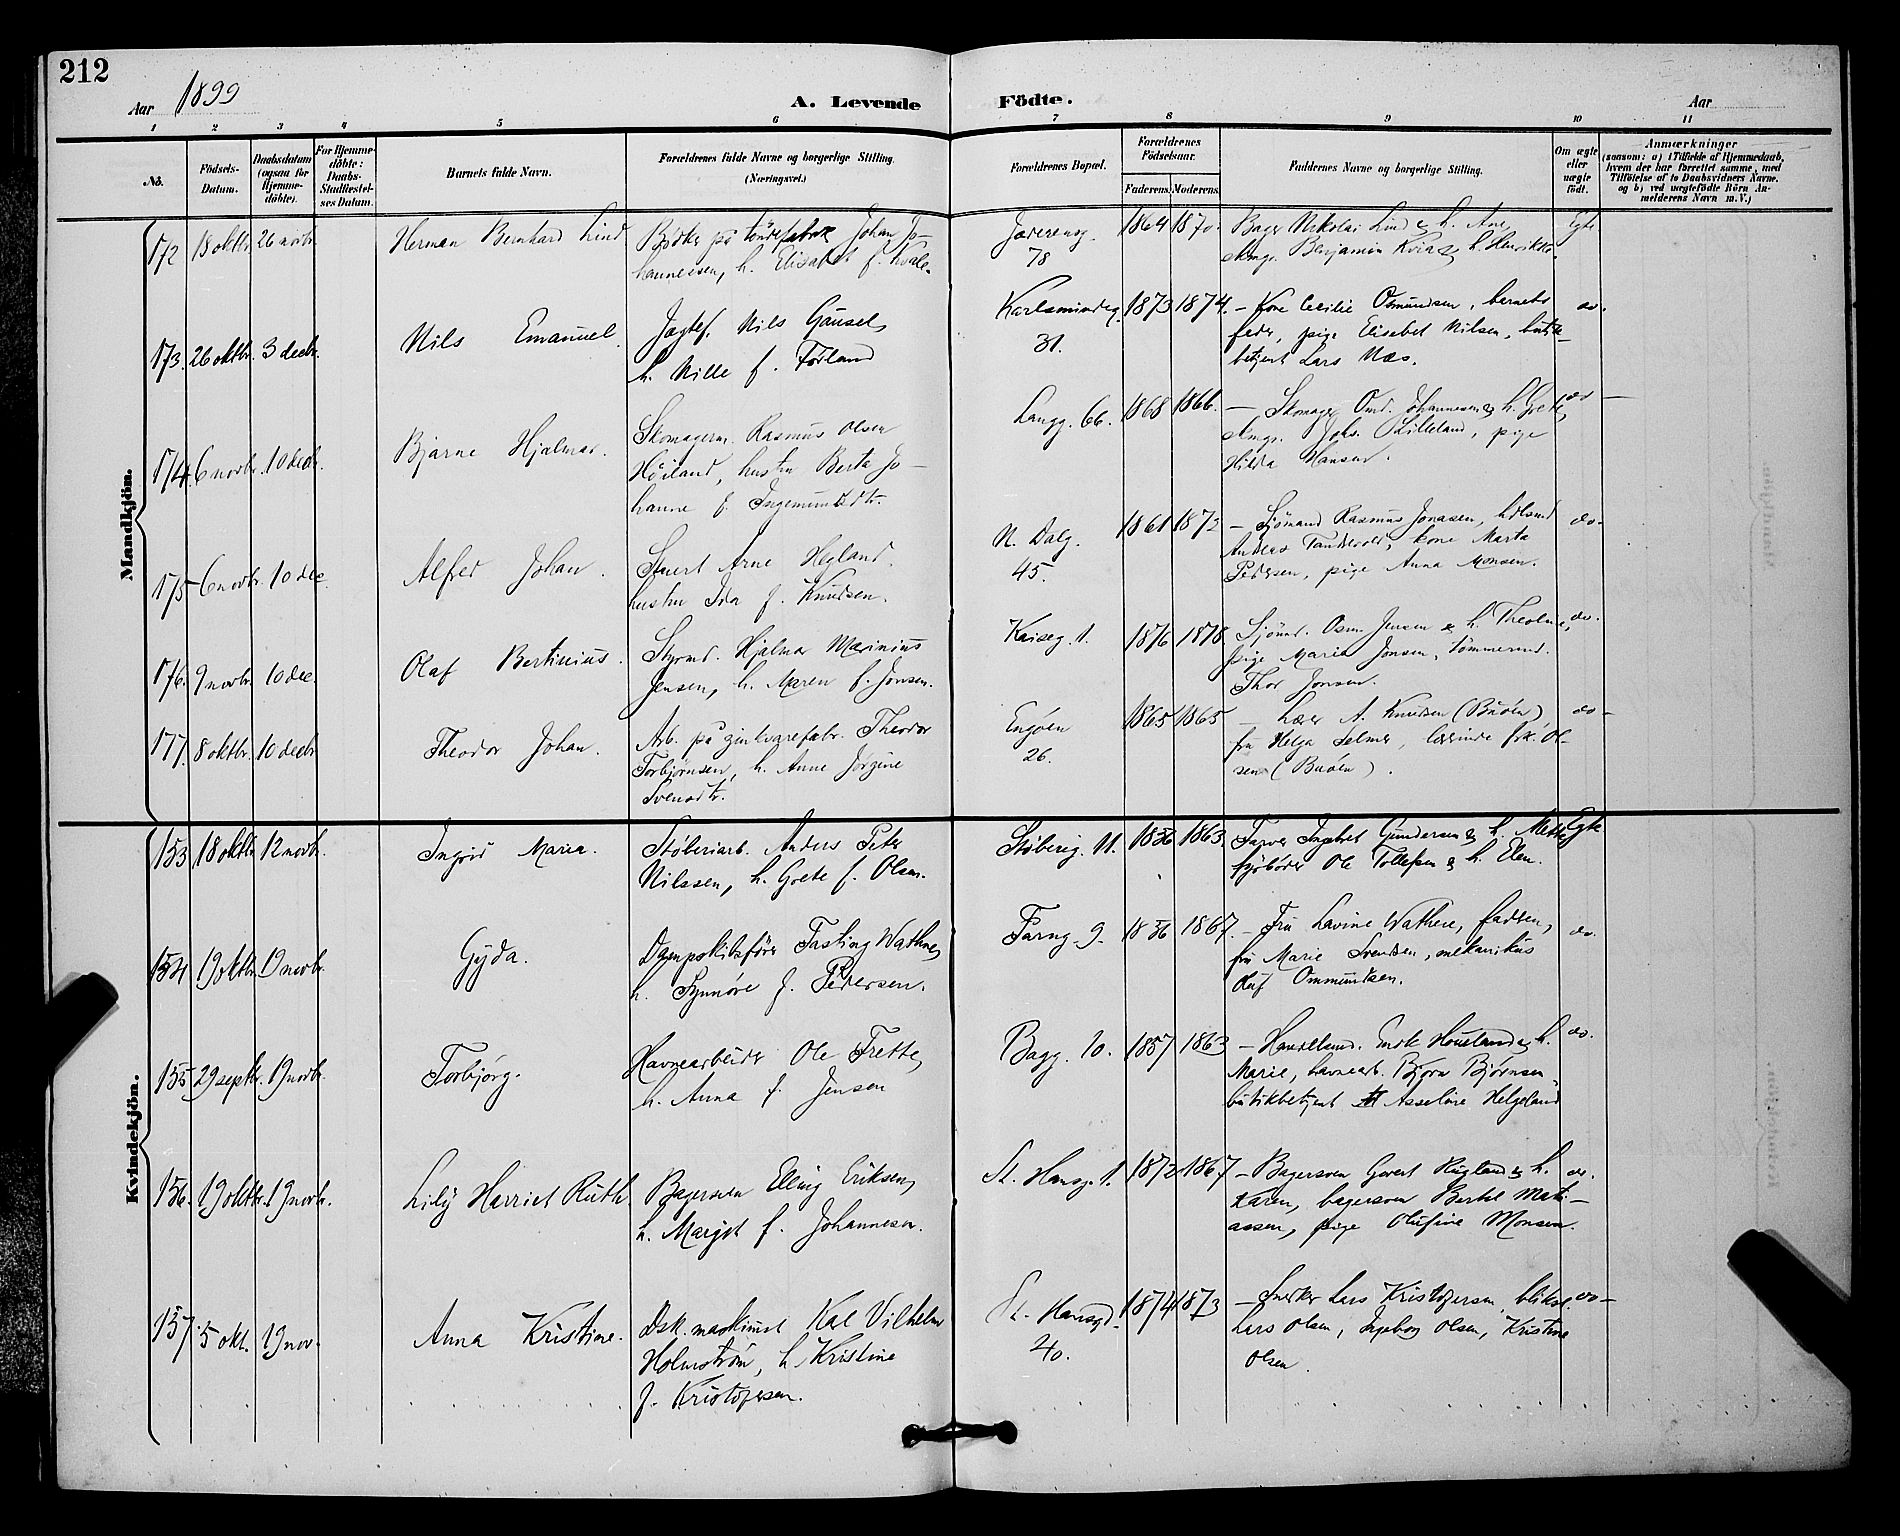 212
Aar 1899
A. Levende
Födte.
Aar
1 2 3 4 5 6 7 8 9 10 11
No.
Födsels-
Datum.
Daabsdatum
(ogsaa for
Hjemme-
döbte).
For Hjemme-
döbte:
Daabs-
Stadfæstel-
ses Datum.
Barnets fulde Navn.
Forældrenes fulde Navne og borgerlige Stilling.
(Næringsvei.)
Forældrenes Bopæl.
Forældrenes
Födselsaar.
Faderens. Moderens.
Faddernes Navne og borgerlige Stilling.
Om ægte
eller
uægte
født.
Anmærkninger
(saasom: a) i Tilfælde af Hjemmedaab,
hvem der har forrettet samme, med
Tilföielse af to Daabsvidners Navne.
og b) ved uægtefödte Börn An-
melderens Navn m.V.)
Mandkjön.
172 18 oktbr. 26 novbr. Herman Bernhard Lind Bødker på tøndefabrik Johan Jo-
hannessen, h. Elisabet f. Kvale.
Jæderensg.
78
1864 1870. Bager Nikolai Lind & h. Ane,
Benjamin Kvia & h. Henrikke. Egte
173. 26 oktbr. 3 decbr. Nils Emanuel. Jagtef. Nils Gausel,
h. Nille f. Forland
Karlsmindeg.
31.
1873 1874. – Kone Cecilie Osmundsen, barnets
fader, pige Elisabet Nilsen, butik-
betjent Lars Næs. do.
174. 6 novbr. 10 decbr. Bjarne Hjalmar. Skomagerm. Rasmus Olsen
Höiland, hustru Berta Jo-
hanne f. Ingemundsdtr.
Langg. 66. 1868 1866. – Skomager Omd. Johannesen & h. Grete,
Johs. Lilleland, pige
Hilda Hansen. do –
175 6 novbr. 10 dec. Alfred Johan. Stuert Arne Hegland.
hustru Ida f. Knudsen.
N. Dalg.
45.
1861 1872 – Sjömand Rasmus Jonasen,
Anders Tandevold, kone Marta
Pedersen, pige Anna Monsen. do –
176. 9 novbr. 10 dec. Olaf Bertinius. Styrmd. Hjalmar Marinius
Jensen, h. Maren f. Jonsen.
Kaiseg. 1. 1876 1878. Sjömd. Osm. Jensen & h. Theoline,
pige Maria Jonsen, tömmermd.
Thor Jonsen. do.
177. 8 oktbr. 10 decbr. Theodor Johan. Arb. på zinkvarefabr. Theodor
Torbjørnsen, h. Anne Jørgine
Svensdtr.
Engöen
26.
1865 1865 – Lærer A. Knudsen (Buöen)
fru Helga Selmer, lærerinde frk. Ol-
sen (Buöen). do –
Kvindekjön.
153 18 oktbr. 12 novbr. Ingrid Maria. Støberiarb. Anders Peter
Nilssen, h. Grete f. Olsen.
Støberig. 11. 1856 1863. Farver Ingebret Gundersen & h. Mette,
fyrbøder Ole Tollefsen & h. Elen. Egte
154 19 oktbr. 19 novbr. Gyda. Dampskibsfører Tasting Wathne,
h. Synnøve f. Pedersen.
Farng. 9. 1856 1867. – Fru Lavine Wathne, fadren,
fru Marie Svendsen, mekanikus
Olaf Ommundsen. do.
155 29 septbr. 19 novbr. Torbjörg. Havnearbeider Ole Frette,
h. Anna f. Jensen
Bagg. 10. 1857 1863 – Handelsmd. Endre Houeland & h.
Marie, havnearb. Bjørn Bjørnsen,
butikbetjent Asseline Helgeland do.
156. 19 oktbr. 19 novbr. Lily Harriet Ruth. Bagersven Elling Eriksen,
h. Margit f. Johannesen.
St. Hansg. 1. 1872 1867 – Bagersven Govert Hugland & h.
Karen, bagersven Bertel Mati-
assen, pige Olufine Monsen. do.
157. 5 okt. 19 nov. Anna Kristine. Dsk. maskinist Karl Vilhelm
Holmström, h. Kristine
f. Kristofersen.
St. Hansgd.
40.
1874 1873 – Snekker Lars Kristofersen, bliksl.
Lars Olsen, Ingeborg Olsen, Kristine
Olsen. do –